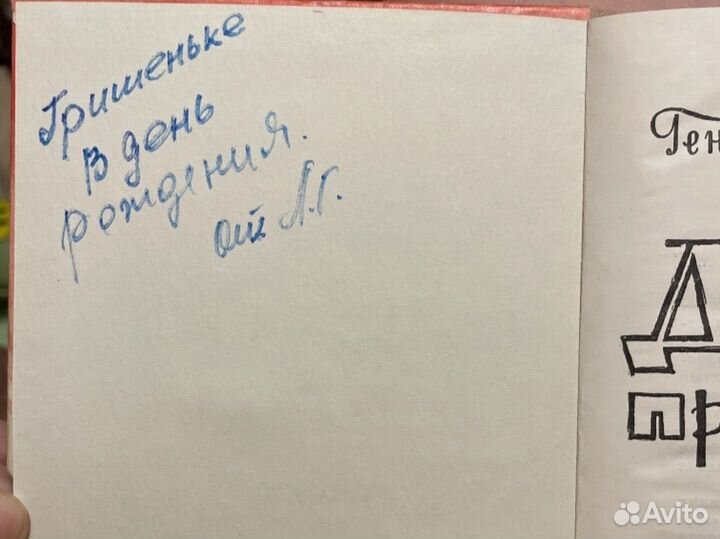 Гришеньке
в день
рождения.
от Л.Г.
Ген
Д
пр
Avito